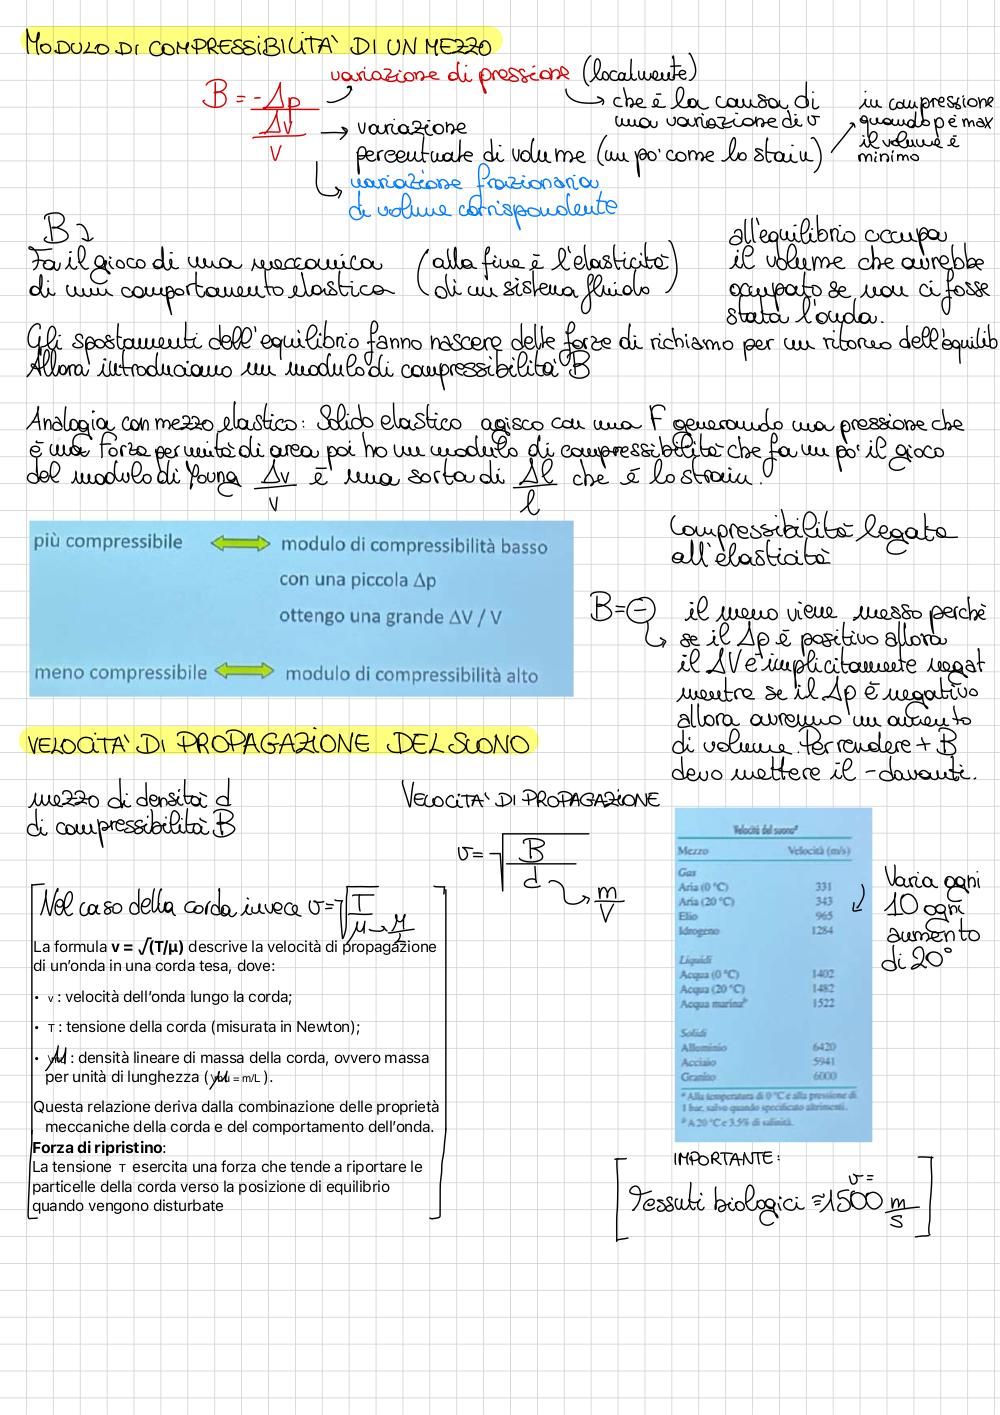 MODULO DI COMPRESSIBILITA' DI UN MEZZO
B = - Δp / (Δv / v)
variazione di pressione (localmente)
→ che è la causa di
una variazione di v
in compressione
quando p è max
il volume è
minimo
→ variazione
percentuale di volume (un po' come lo stain)
variazione frazionaria
di volume corrispondente
B
Fa il gioco di una meccanica
di un comportamento elastico
(alla fine è l'elasticità
di un sistema fluido)
all'equilibrio occupa
il volume che avrebbe
occupato se non ci fosse
stata l'onda.
Gli spostamenti dell'equilibrio fanno nascere delle forze di richiamo per un ritorno dell'equilib
Allora introduciamo un modulo di compressibilità B
Analogia con mezzo elastico: Solido elastico agisco con una F generando una pressione che
è una forza per unità di area poi ho un modulo di compressibilità che fa un po' il gioco
del modulo di Young Δv/v è una sorta di Δl/l che è lo strain.
più compressibile ⟷ modulo di compressibilità basso
con una piccola Δp
ottengo una grande ΔV / V
meno compressibile ⟷ modulo di compressibilità alto
Compressibilità legata
all'elasticità
B = - il meno viene messo perché
se il Δp è positivo allora
il ΔV è implicitamente negat
mentre se il Δp è negativo
allora avremo un aumento
di volume. Per rendere + B
devo mettere il - davanti.
VELOCITA' DI PROPAGAZIONE DEL SUONO
mezzo di densità d
di compressibilità B
VELOCITA' DI PROPAGAZIONE
v = √(B/d) → m/V
Nel caso della corda invece v = √(T/μ) → M/L
La formula v = √(T/μ) descrive la velocità di propagazione
di un'onda in una corda tesa, dove:
• v : velocità dell'onda lungo la corda;
• T : tensione della corda (misurata in Newton);
• μ : densità lineare di massa della corda, ovvero massa
per unità di lunghezza ( μ = m/L ).
Questa relazione deriva dalla combinazione delle proprietà
meccaniche della corda e del comportamento dell'onda.
Forza di ripristino:
La tensione T esercita una forza che tende a riportare le
particelle della corda verso la posizione di equilibrio
quando vengono disturbate
Velocità del suono^a
Mezzo Velocità (m/s)
Gas
Aria (0 °C) 331
Aria (20 °C) 343
Elio 965
Idrogeno 1284
Liquidi
Acqua (0 °C) 1402
Acqua (20 °C) 1482
Acqua marina^b 1522
Solidi
Alluminio 6420
Acciaio 5941
Granito 6000
^a Alla temperatura di 0 °C e alla pressione di
1 bar, salvo quando specificato altrimenti.
^b A 20 °C e 3.5% di salinità.
Varia ogni
10 ogni
aumento
di 20°
IMPORTANTE:
Tessuti biologici v = ≈1500 m/s